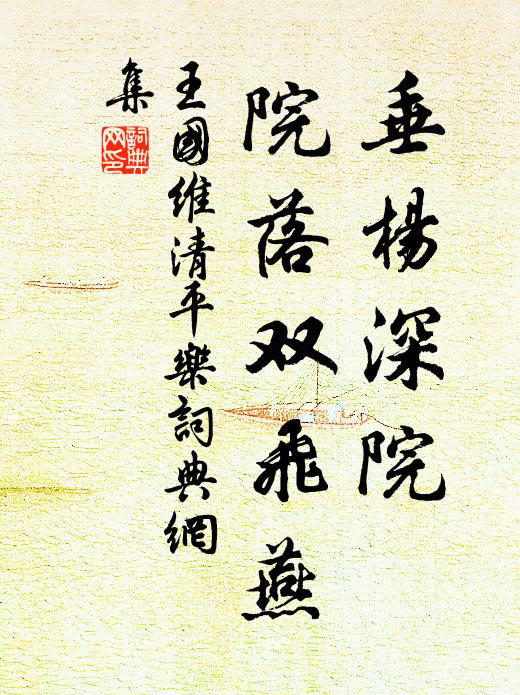 垂楊深院
院落双飛燕
王國維清平樂詞典網
集
詞典网印